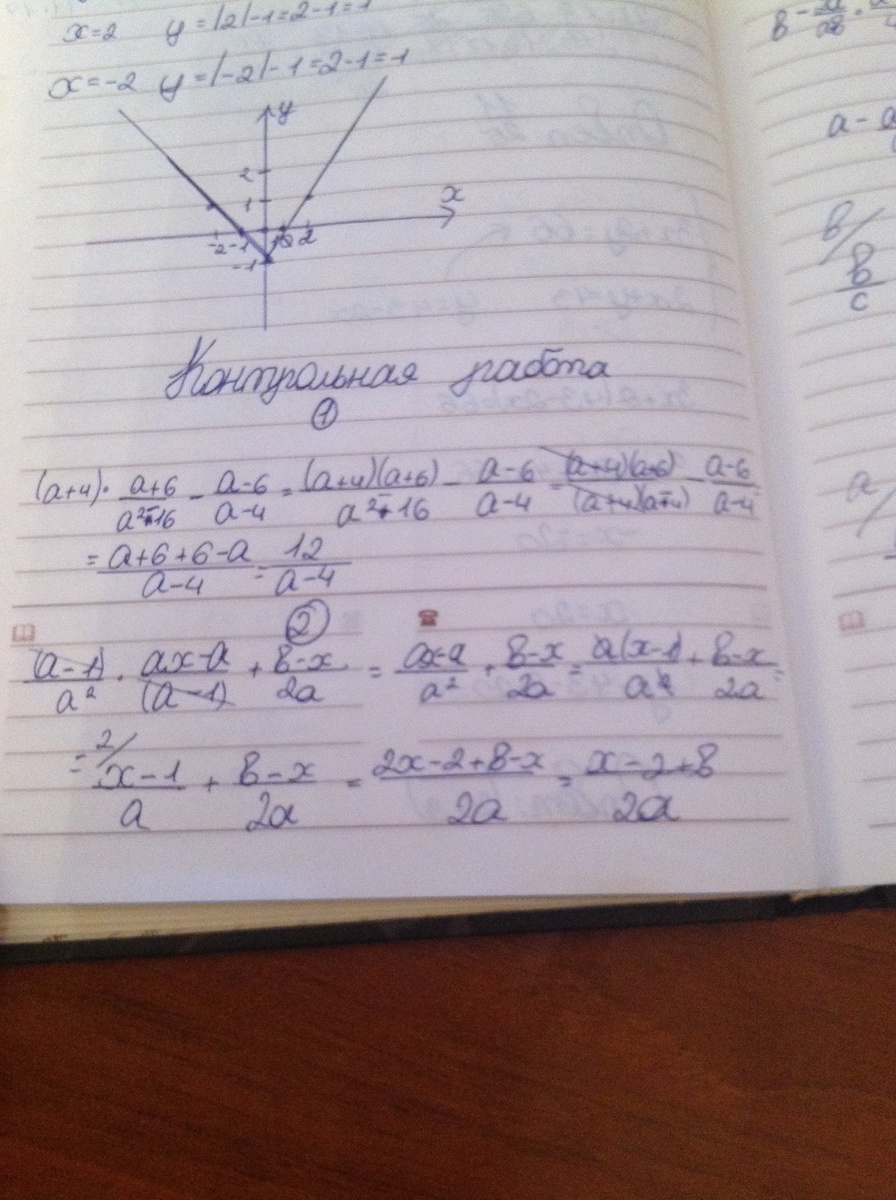 x=2 y=|2|-1=2-1=1
x=-2 y=|-2|-1=2-1=1
y
2
1
x
-2 -1 2
-1
Контрольная работа
1
(a+4)·(a+6)/(a²-16) - (a-6)/(a-4) = (a+4)(a+6)/(a²-16) - (a-6)/(a-4) = (a+4)(a+6)/((a+4)(a-4)) - (a-6)/(a-4)
= (a+6+6-a)/(a-4) = 12/(a-4)
2
(a-1)/a² · (ax-a)/(a-1) + (в-x)/2a = (ax-a)/a² + (в-x)/2a = a(x-1)/a² + (в-x)/2a =
= 2/ (x-1)/a + (в-x)/2a = (2x-2+в-x)/2a = (x-2+в)/2a
a -
в/
в/c
a/